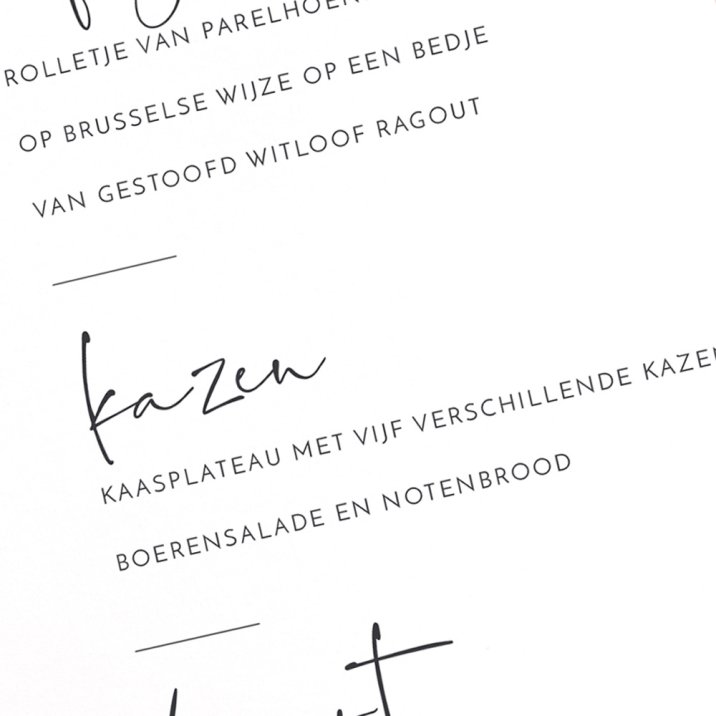 ROLLETJE VAN
OP BRUSSELSE WIJZE OP EEN BEDJE
VAN GESTOOFD WITLOOF RAGOUT
kazen
KAASPLATEAU MET VIJF VERSCHILLENDE
BOERENSALADE EN NOTENBROOD